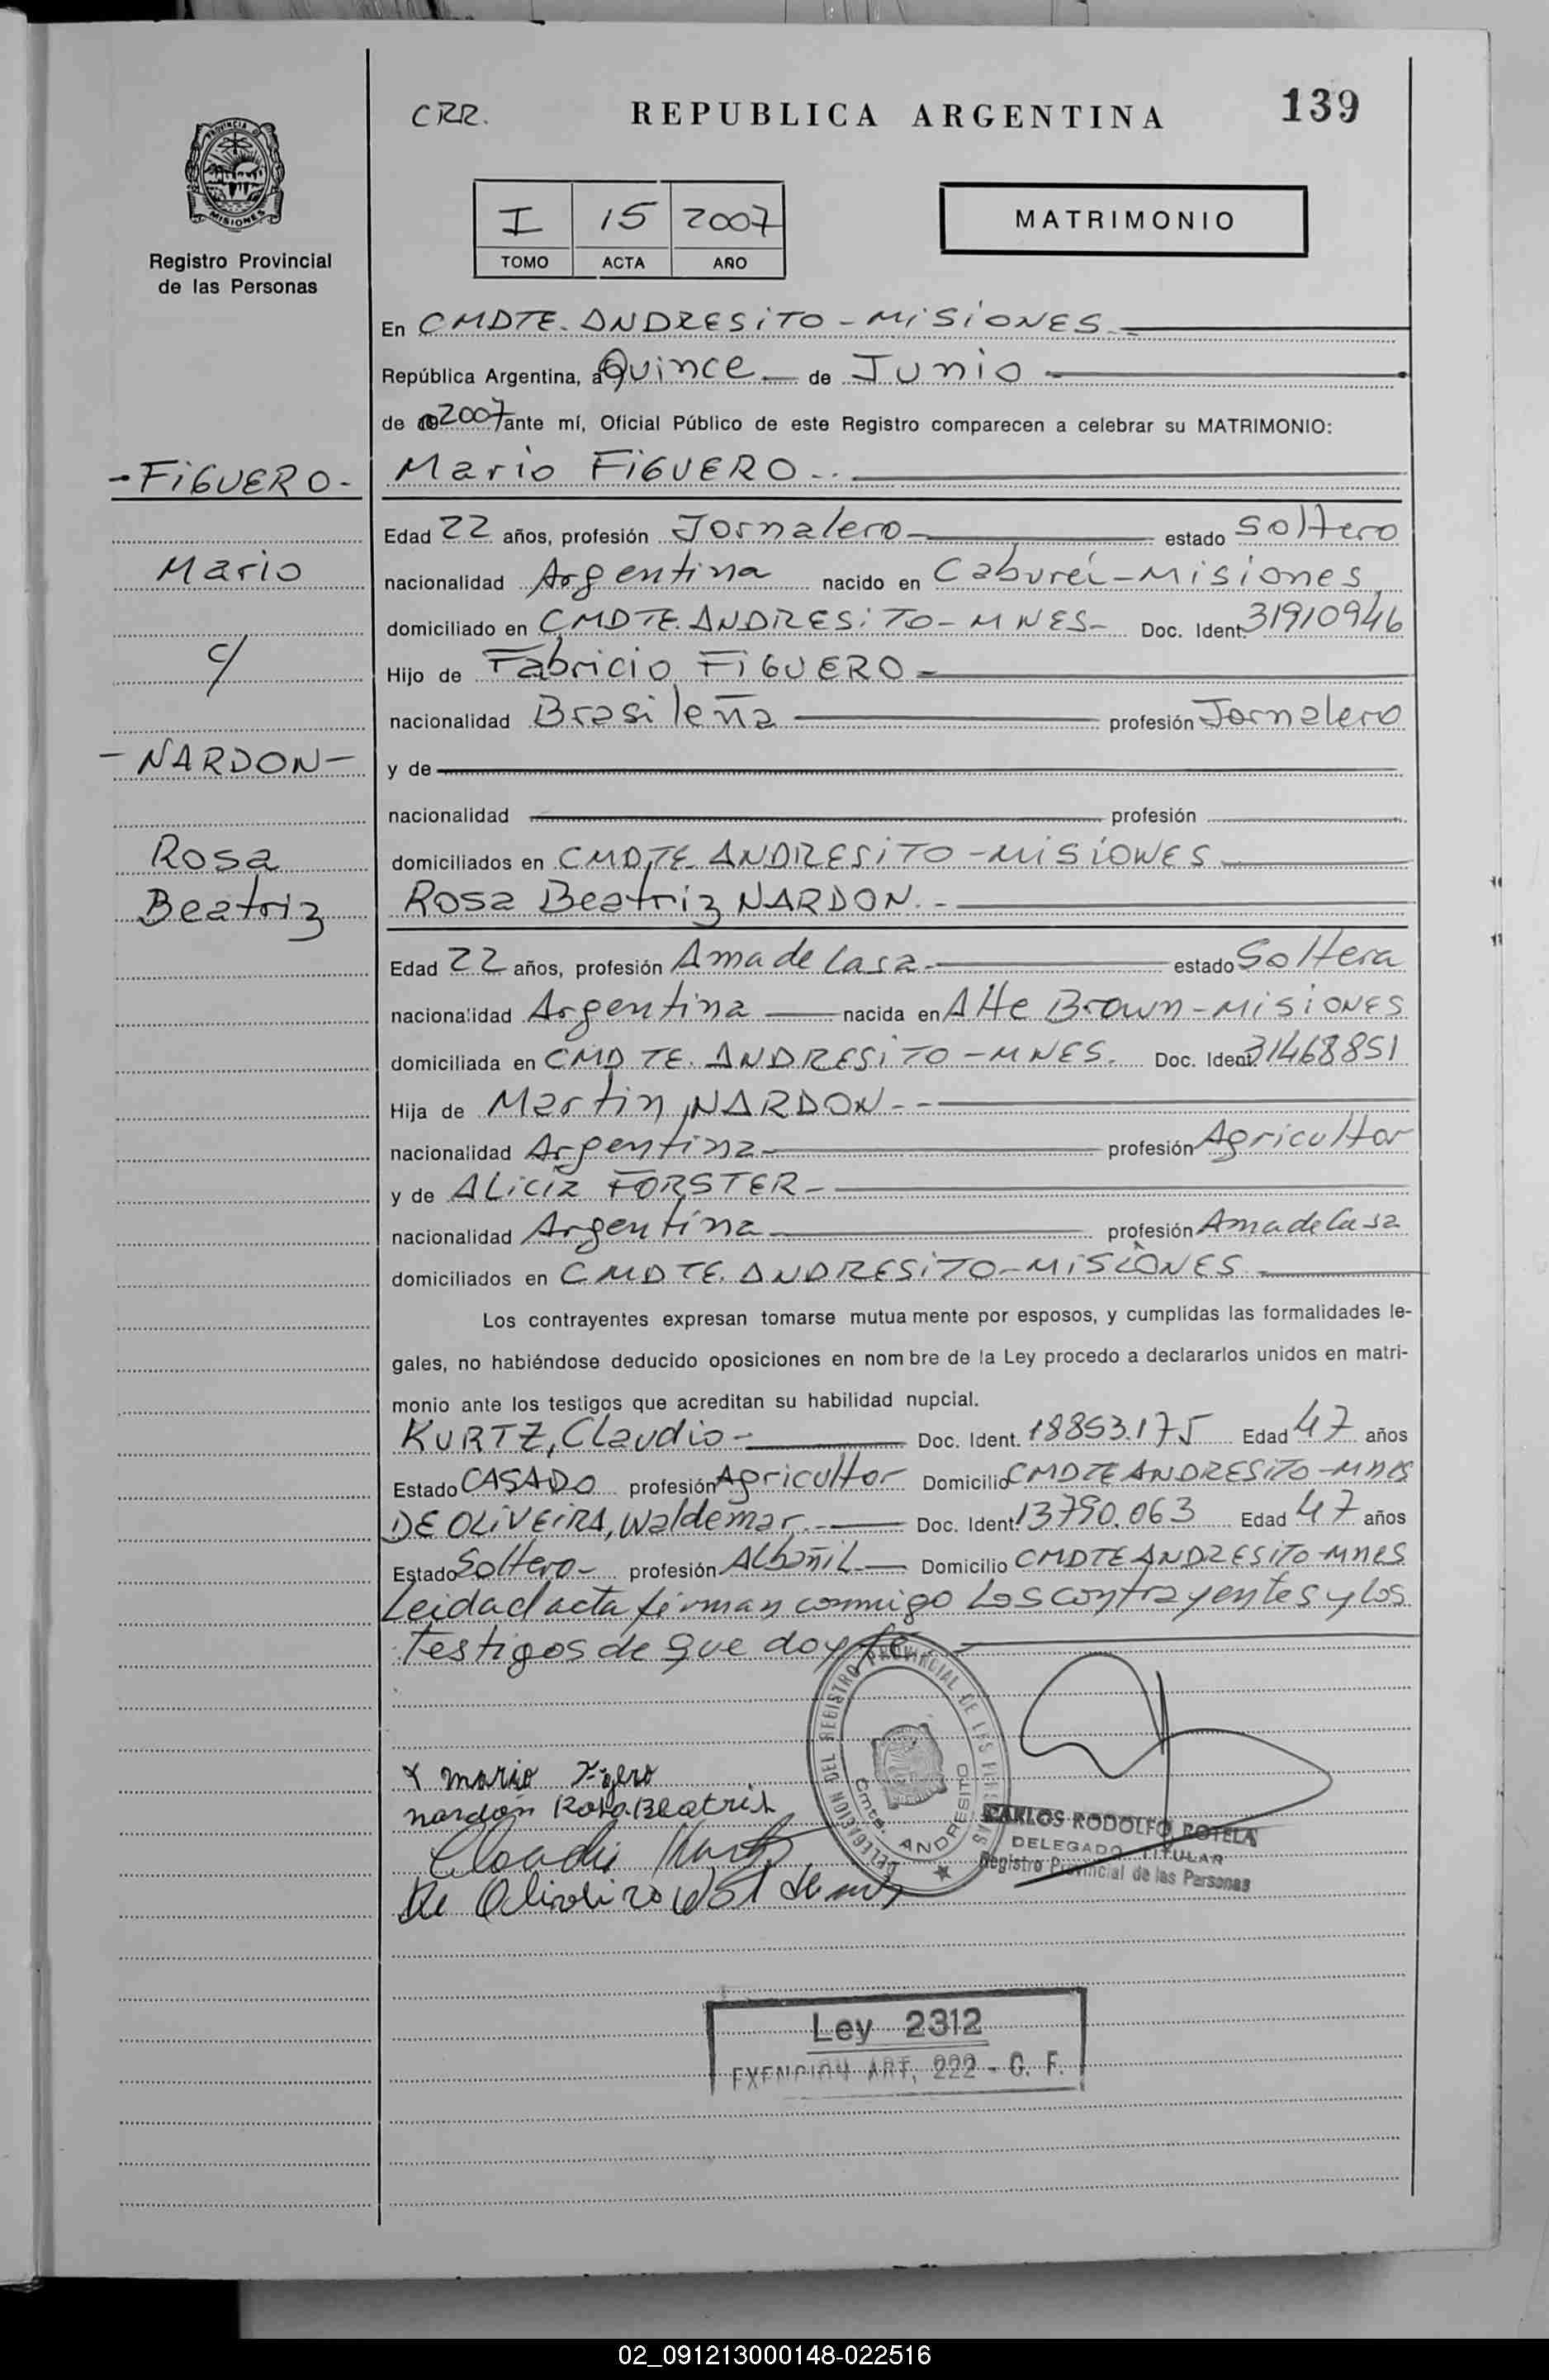 CRR.
REPUBLICA ARGENTINA
139
PROVINCIA DE
MISIONES
Registro Provincial
de las Personas
I 15 2007
TOMO ACTA AÑO
MATRIMONIO
En CMDTE. ANDRESiTO - MiSiONES -
República Argentina, a Quince de Junio
de 2007 ante mí, Oficial Público de este Registro comparecen a celebrar su MATRIMONIO:
- FiGUERO -
Mario FiGUERO -
Edad 22 años, profesión Jornalero estado Soltero
Mario
nacionalidad Argentina nacido en Caburéi - Misiones
domiciliado en CMDTE. ANDRESiTO - MNES - Doc. Ident. 31910946
c/
Hijo de Fabricio FiGUERO -
nacionalidad Brasileña profesión Jornalero
- NARDON -
y de
nacionalidad profesión
Rosa
domiciliados en CMDTE. ANDRESiTO - MiSiONES
Beatriz
Rosa Beatriz NARDON. -
Edad 22 años, profesión Ama de Casa - estado Soltera
nacionalidad Argentina nacida en Alte Brown - MiSiONES
domiciliada en CMDTE. ANDRESiTO - MNES. Doc. Ident. 31468851
Hija de Martin NARDON - -
nacionalidad Argentina profesión Agricultor
y de ALicia FORSTER -
nacionalidad Argentina profesión Ama de Casa
domiciliados en CMDTE. ANDRESiTO - MiSiONES
Los contrayentes expresan tomarse mutua mente por esposos, y cumplidas las formalidades le-
gales, no habiéndose deducido oposiciones en nom bre de la Ley procedo a declararlos unidos en matri-
monio ante los testigos que acreditan su habilidad nupcial.
KURTZ, Claudio - Doc. Ident. 18853.175 Edad 47 años
Estado CASADO profesión Agricultor Domicilio CMDTE ANDRESiTO - Mnes
DE OLiVEiRA, Waldemar. - Doc. Ident. 13790.063 Edad 47 años
Estado Soltero - profesión Albañil Domicilio CMDTE ANDRESiTO - Mnes
Leida el acta firman conmigo Los contrayentes y los
testigos de que doy fé
DELEGACION DEL REGISTRO PROVINCIAL DE LAS PERSONAS
Cmte. ANDRESITO
x mario Figero
nardon Rosa Beatris
Claudio Kurtz
De Oliveira
CARLOS RODOLFO ROTELA
DELEGADO TITULAR
Registro Provincial de las Personas
Ley 2312
EXENCION ART. 222 - C. F.
02_091213000148-022516